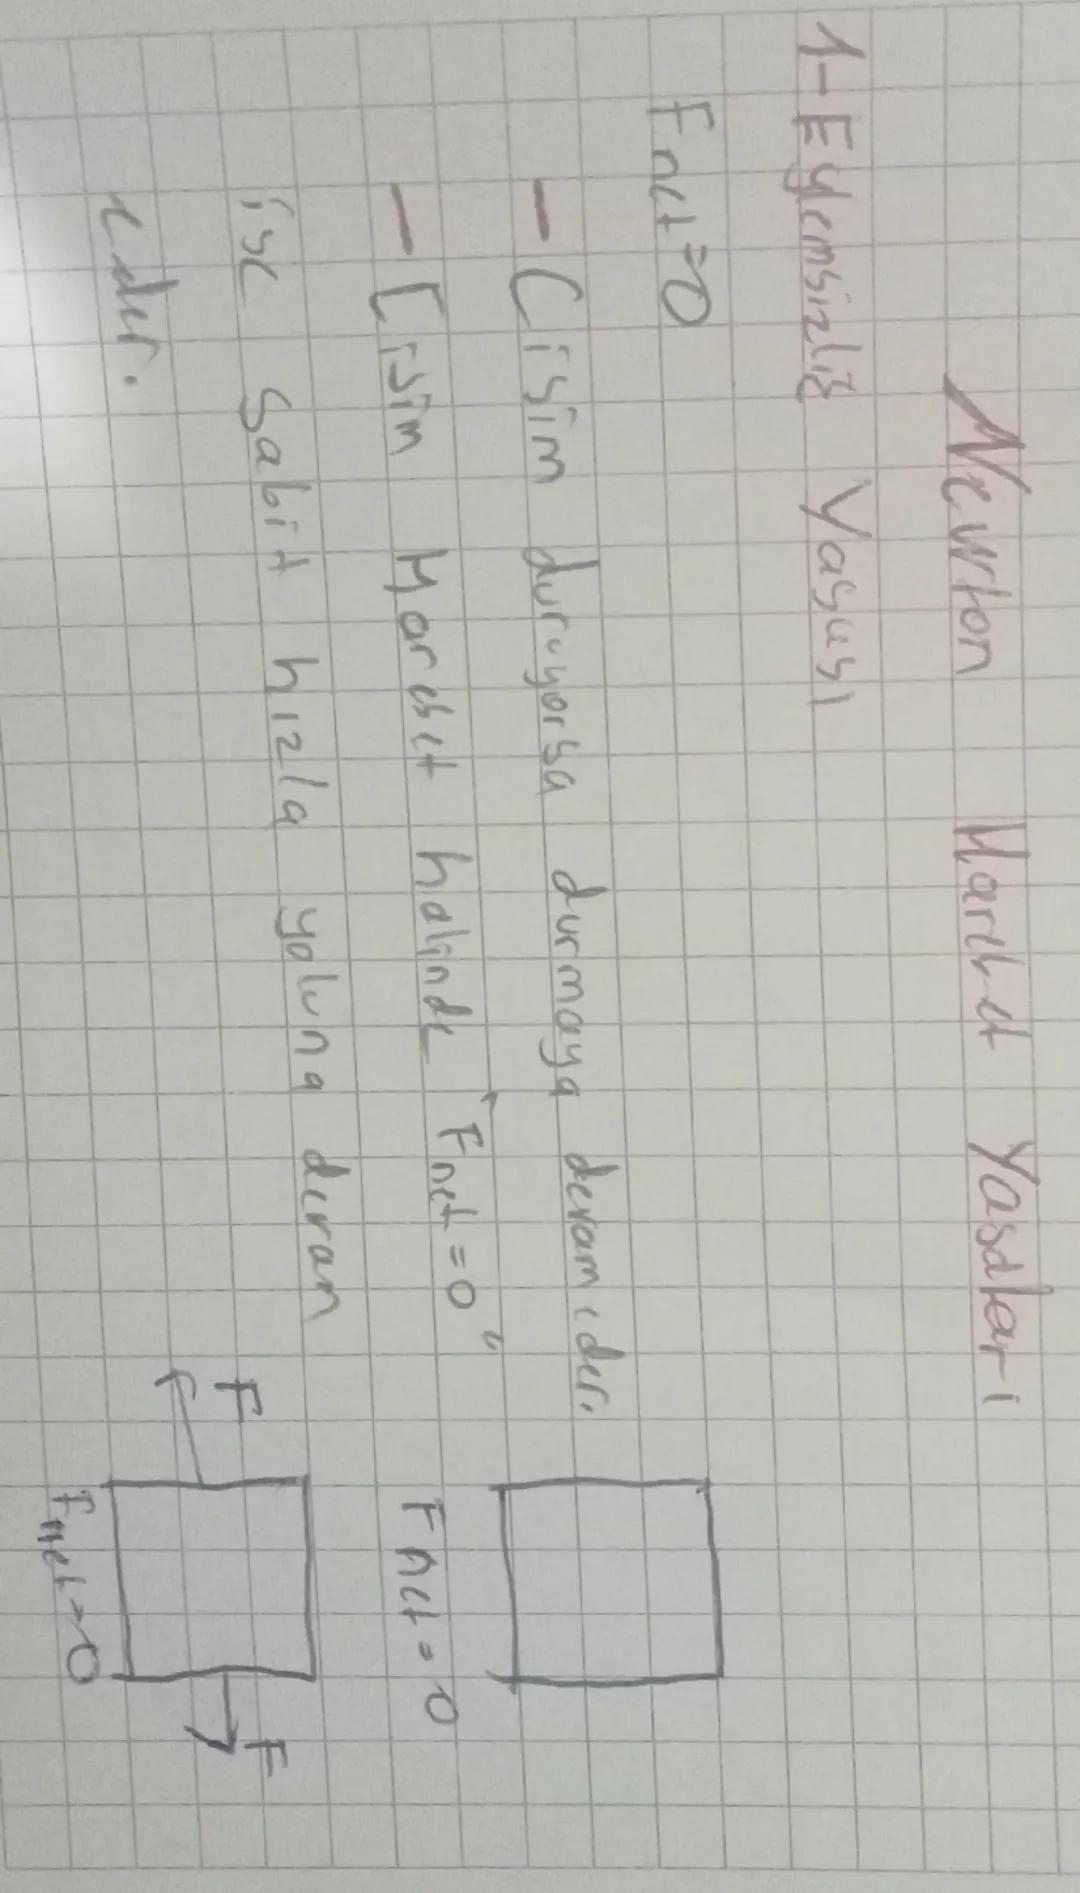 Newton Hareket Yasaları
1-Eylemsizlik Yasası
Fnet=0
- Cisim duruyorsa durmaya devam eder.
- Cisim Hareket halinde "Fnet=0"
ise sabit hızla yoluna devam
eder.
Fnet=0
F
F
Fnet=0